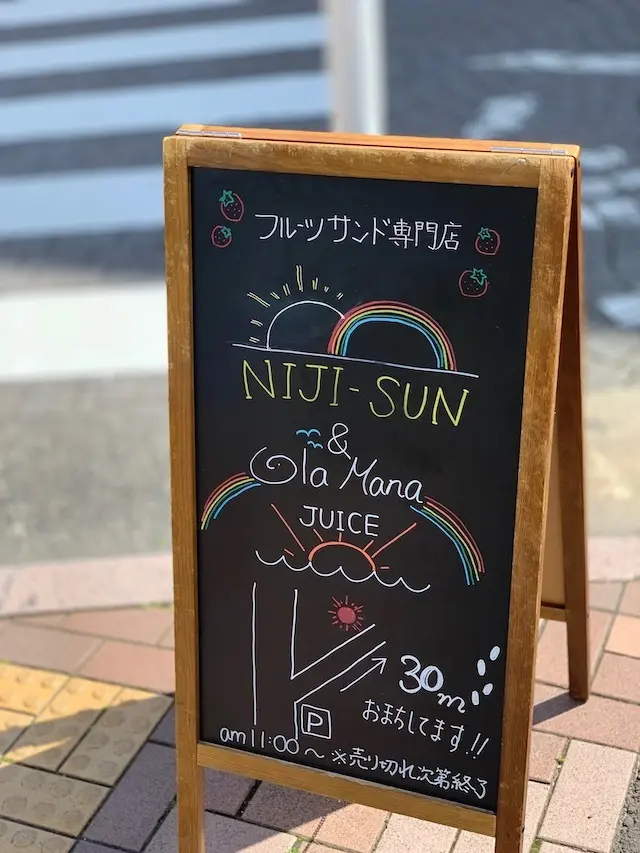 フルーツサンド専門店
NIJI-SUN
&
Ola Mana
JUICE
30m
おまちしてます!!
P
am11:00~ ※売り切れ次第終了